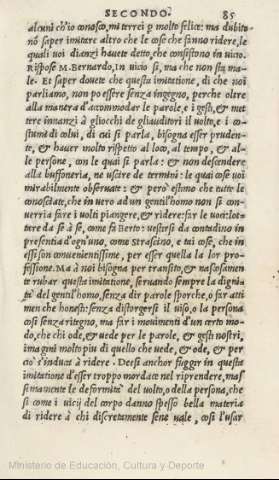 SECONDO. 85
alcuni ch'io conosco, mi terrei p molto felice: ma dubito
nō saper imitare altro che le cose che fanno ridere, le
quali voi dianzi hauete detto, che consistono in vicio.
Rispose M. Bernardo, In vicio sì, ma che non sta ma-
le. Et saper douete che questa imitatione, di che noi
parliamo, non po essere senza ingegno, perche oltre
alla manera d'accommodar le parole, e i gesti, & met
tere innanzi à gliocchi de gliauditori il volto, e i co-
stumi di colui, di cui si parla, bisogna esser pruden-
te, & hauer molto rispetto al loco, al tempo, & al-
le persone, con le quai si parla: & non descendere
alla buffoneria, ne uscire de termini: le quai cose voi
mirabilmente obseruate: & però estimo che tutte le
conosciate, che in uero ad un gentil'homo non si con-
uerria fare i volti piangere, & ridere: far le uoci: lot-
tere da sè à sè, come fà Berto: uestirsi da contadino in
presentia d'ogn'uno, come Strascino, e tai cose, che in
essi son conuenientissime, per esser quella la lor pro-
fessione. Ma à noi bisogna per transito, & nascosamen
te rubar questa imitatione, seruando sempre la digni-
tà del gentil'homo, senza dir parole sporche, o far atti
men che honesti: senza distorgersi il uiso, o la persona
così senza ritegno, ma far i mouimenti d'un certo mo-
do, che chi ode, & uede per le parole, & gesti nostri,
imagini molto piu di quello che uede, & ode, & per
ciò s'induca à ridere. Deesi anchor fuggir in questa
imitatione d'esser troppo mordace nel riprendere, mas
simamente le deformità del uolto, o della persona, che
sì come i uicij del corpo danno spesso bella materia
di ridere à chi discretamente sene vale, così l'usar
Ministerio de Educación, Cultura y Deporte